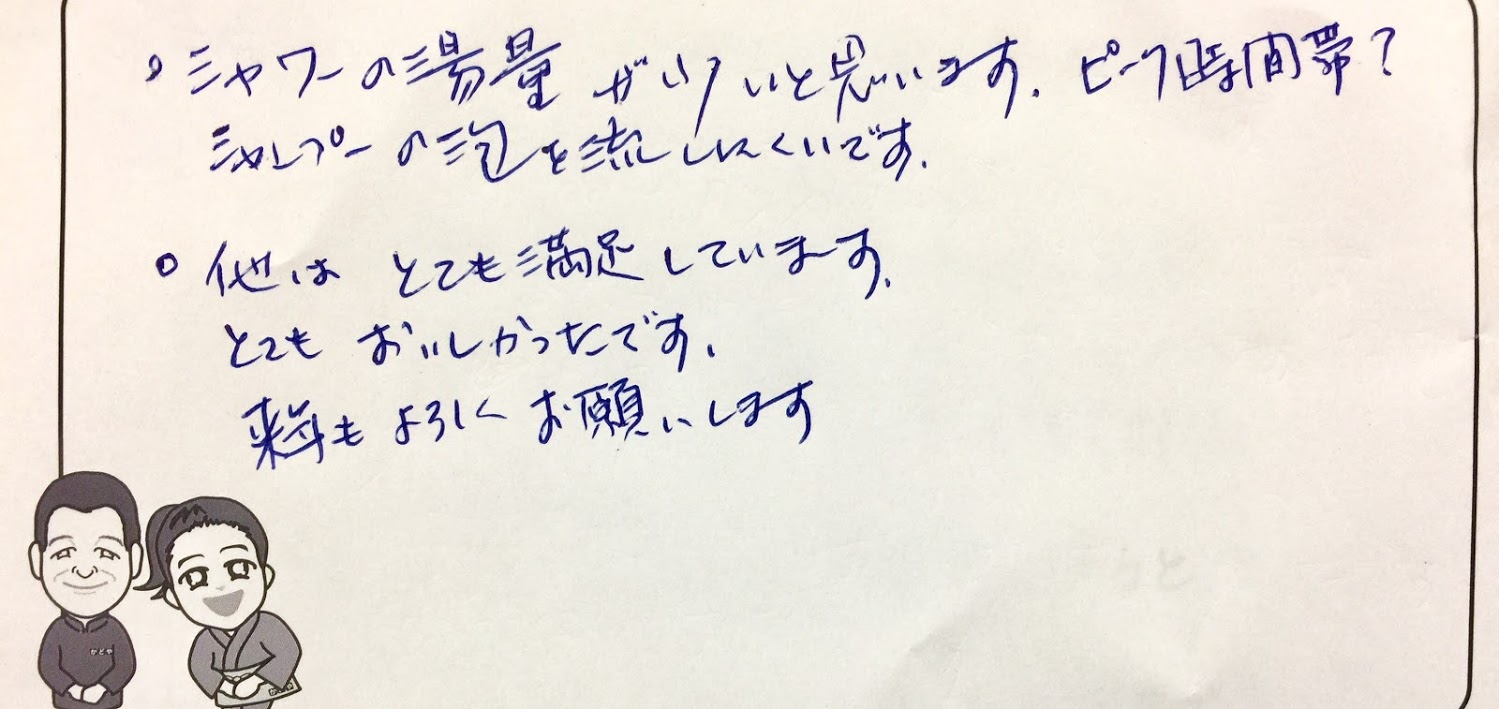 • シャワーの湯量 が少ないと思います. ピーク時間帯?
シャンプーの泡を流しにくいです.
• 他は とても満足しています.
とても おいしかったです.
来年も よろしく お願いします
かどや